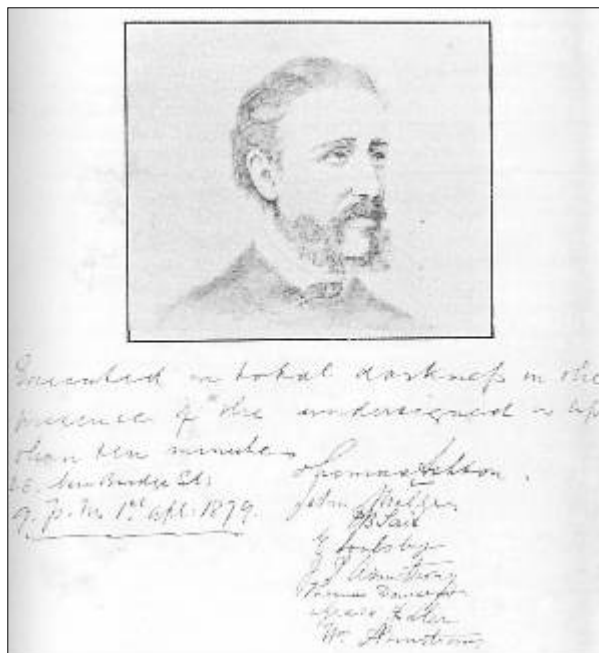 Executed in total darkness in the
presence of the undersigned in less
than ten minutes
26. New Bridge St.
9. p.m. 1st Apl. 1879.
Thomas Ashton.
John
T P
J. J. Armstrong
Thomas
Wm. Armstrong